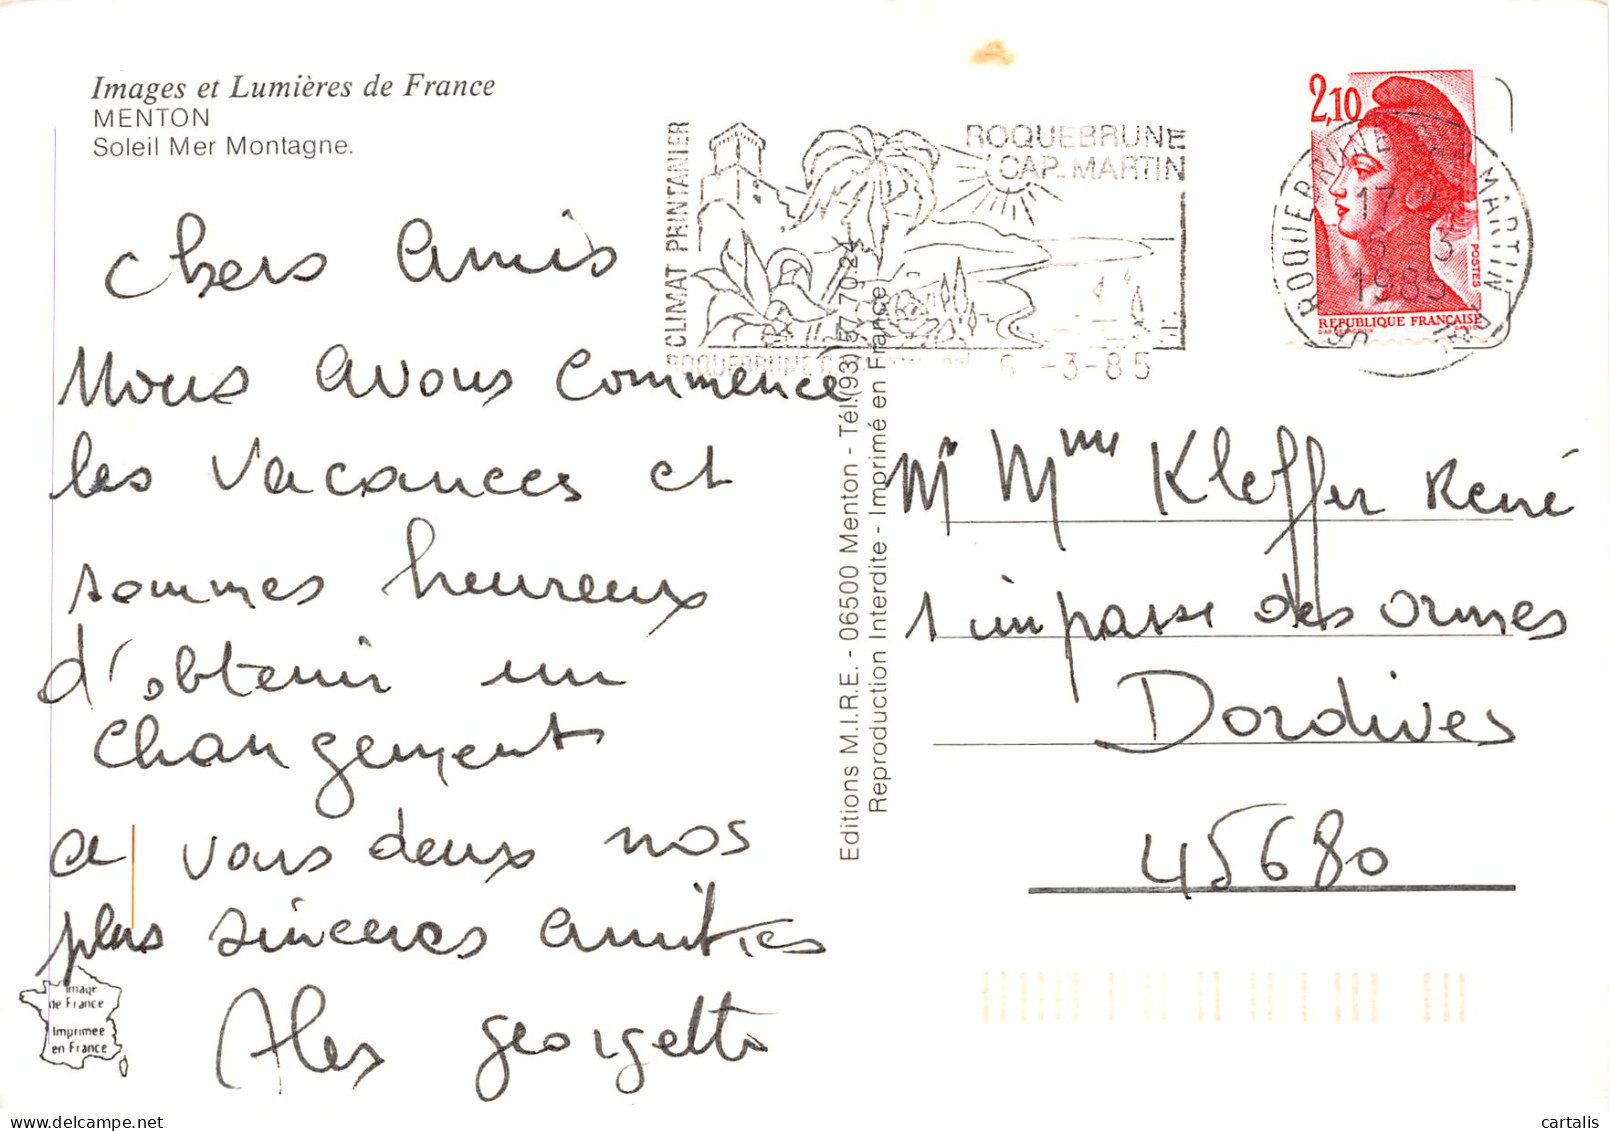 Images et Lumières de France
MENTON
Soleil Mer Montagne.
Chers Amis
Nous avons commencé
les vacances et
sommes heureux
d'obtenir un
changement
a vous deux nos
plus sinceres amities
Alex georgette
Image
de France
Imprimée
en France
Editions M.I.R.E. - 06500 Menton - Tél.(93) 57.70.24
Reproduction Interdite - Imprimé en France
CLIMAT PRINTANIER
ROQUEBRUNE
CAP-MARTIN
6 -3-85
2,10
POSTES
REPUBLIQUE FRANÇAISE
ROQUEBRUNE CAP MARTIN
17 H
6 - 3
1985
Mr Mme Kleffer René
1 impasse des ormes
Dordives
45680
cartalis